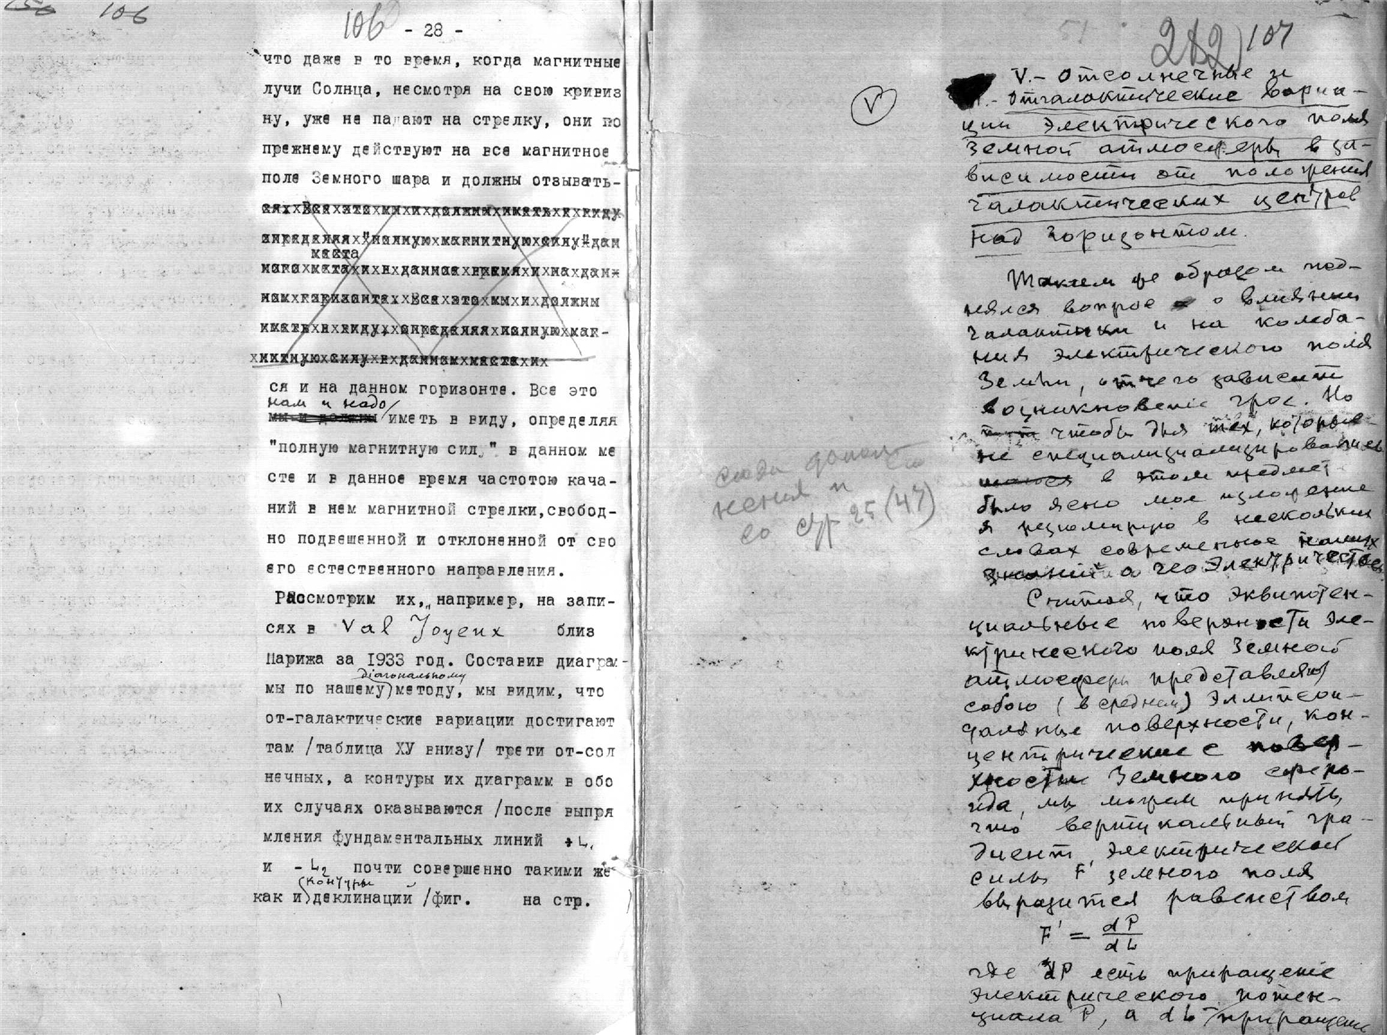 106
106
- 28 -
что даже в то время, когда магнитные
лучи Солнца, несмотря на свою кривиз
ну, уже не падают на стрелку, они по
прежнему действуют на все магнитное
поле Земного шара и должны отзывать-
места
ся и на данном горизонте. Все это
нам и надо
мы и должны иметь в виду, определяя
"полную магнитную силу" в данном ме
сте и в данное время частотою кача-
ний в нем магнитной стрелки,свобод-
но подвешенной и отклоненной от сво
его естественного направления.
Рассмотрим их, например, на запи-
сях в Val Joyeux близ
Парижа за 1933 год. Составив диаграм-
діагональному
мы по нашему методу, мы видим, что
от-галактические вариации достигают
там /таблица ХУ внизу/ трети от-сол
нечных, а контуры их диаграмм в обо
их случаях оказываются /после выпря
мления фундаментальных линий + L,
и - L2 почти совершенно такими же
контуры
как и деклинаций /фиг. на стр.
сюда дополнения и
со стр 25 (47)
V
212 107
V.- Отсолнечные и
отгалактические вариа-
ции электрического поля
Земной атмосферы в за-
висимости от положения
галактических центров
над горизонтом.
Таким же образом под-
нялся вопрос о влиянии
галактики и на колеба-
ния электрического поля
Земли, отчего зависит
возникновение гроз. Но
чтобы для тех, которые
не специализировались
в этом предмете
было ясно мое изложение
я резюмирую в нескольких
словах современное
Считая, что эквипотен-
циальные поверхности эле-
ктрического поля Земной
атмосферы представляют
собою (в среднем) эллипсои-
дальные поверхности, кон-
центрические с повер-
хностью Земного сферо-
ида, мы можем принять,
что вертикальный гра-
диент электрической
силы F земного поля
выразится равенством
F' = dP / dL
где dP есть приращение
электрического потен-
циала P, а dL приращение